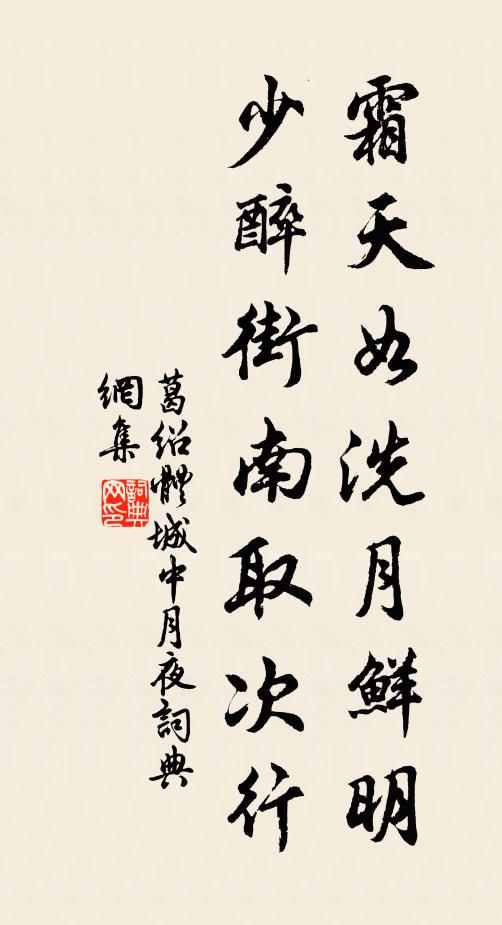 霜天如洗月鮮明
少醉街南取次行
葛紹體城中月夜詞典
網集
詞典
网印